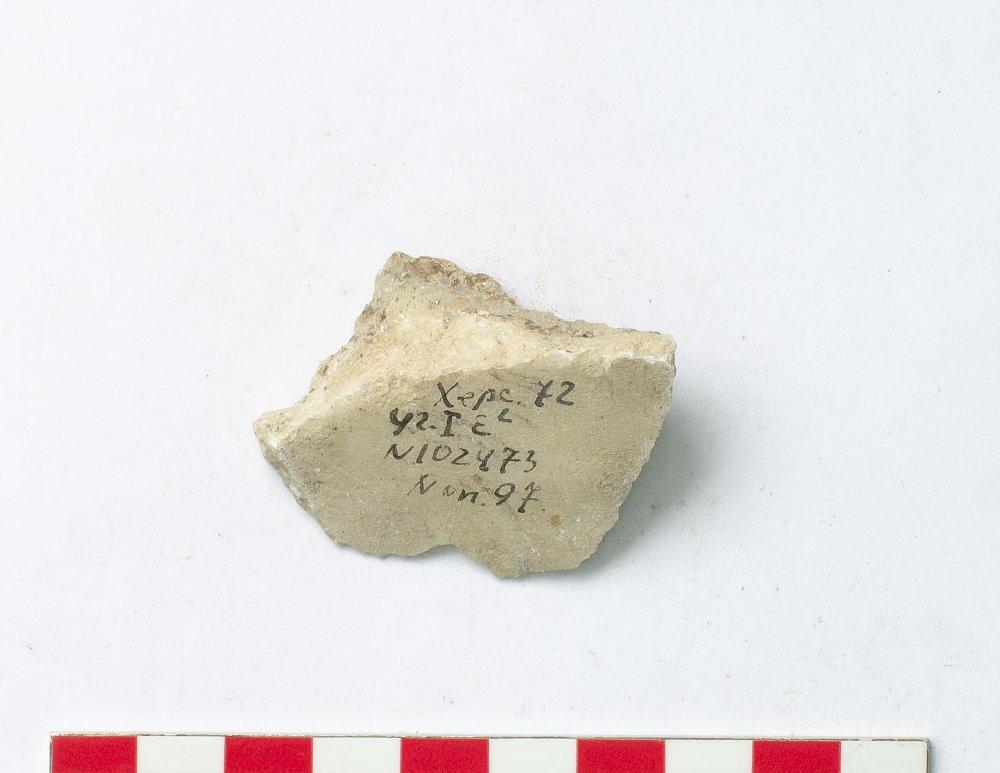 Херс. 72
Уч. I Е²
N102473
N оп. 97.